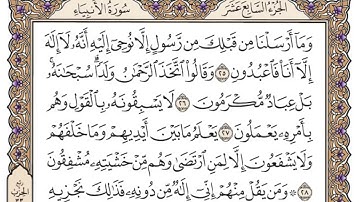 الجزء السابع عشر سورة الأنبياء
وَمَا أَرْسَلْنَا مِن قَبْلِكَ مِن رَّسُولٍ إِلَّا نُوحِي إِلَيْهِ أَنَّهُ لَا إِلَٰهَ
إِلَّا أَنَا فَاعْبُدُونِ ٢٥ وَقَالُوا اتَّخَذَ الرَّحْمَٰنُ وَلَدًا ۗ سُبْحَانَهُ ۚ
بَلْ عِبَادٌ مُّكْرَمُونَ ٢٦ لَا يَسْبِقُونَهُ بِالْقَوْلِ وَهُم
بِأَمْرِهِ يَعْمَلُونَ ٢٧ يَعْلَمُ مَا بَيْنَ أَيْدِيهِمْ وَمَا خَلْفَهُمْ
وَلَا يَشْفَعُونَ إِلَّا لِمَنِ ارْتَضَىٰ وَهُم مِّنْ خَشْيَتِهِ مُشْفِقُونَ
٢٨ ۞ وَمَن يَقُلْ مِنْهُمْ إِنِّي إِلَٰهٌ مِّن دُونِهِ فَذَٰلِكَ نَجْزِيهِ